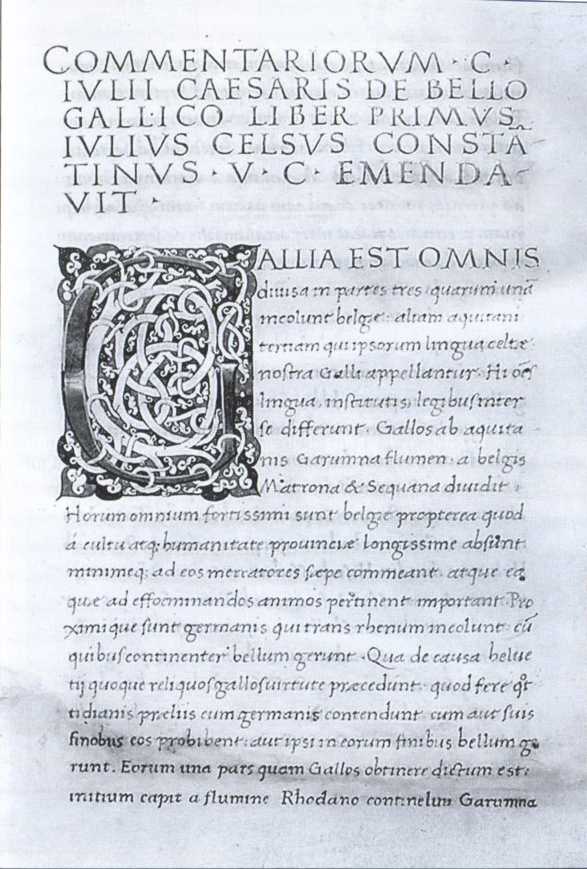 COMMENTARIORVM · C ·
IVLII CAESARIS DE BELLO
GALLICO LIBER PRIMVS
IVLIVS CELSVS CONSTĀ
TINVS · V · C · EMENDA
VIT ·
GALLIA EST OMNIS
diuisa in partes tres quarum unā
incolunt belgæ: aliam aquitani
tertiam qui ipsorum lingua celtæ
nostra Galli appellantur. Hi oēs
lingua, institutis, legibus inter
se differunt. Gallos ab aquita
nis Garumna flumen. a belgis
Matrona & Sequana diuidit.
Horum omnium fortissimi sunt belgæ propterea quod
á cultu atq; humanitate prouinciæ longissime absunt.
minimeq; ad eos mercatores sæpe commeant. atque ea
quæ ad effoeminandos animos pertinent important. Pro
ximique sunt germanis qui trans rhenum incolunt. cū
quibus continenter bellum gerunt. Qua de causa helue
tij quoque reliquos gallos uirtute præcedunt. quod fere qͦt
tidianis præliis cum germanis contendunt. cum aut suis
finibus eos prohibent: aut ipsi in eorum finibus bellum ge
runt. Eorum una pars quam Gallos obtinere dictum est.
initium capit a flumine Rhodano. continetur Garumna